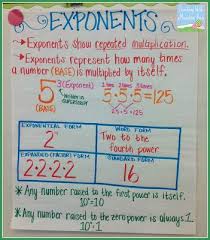 EXPONENTS
• Exponents show repeated multiplication.
• Exponents represent how many times
a number (BASE) is multiplied by itself.
5 3 (Exponent) 1 time 2 times 3 times
5·5·5=125
(BASE)
EXPONENTIAL FORM WORD FORM
2⁴ Two to the
fourth power
EXPANDED (FACTOR) FORM STANDARD FORM
2·2·2·2 16
* Any number raised to the first power is itself.
10¹=10
* Any number raised to the zero power is always 1.
10⁰=1